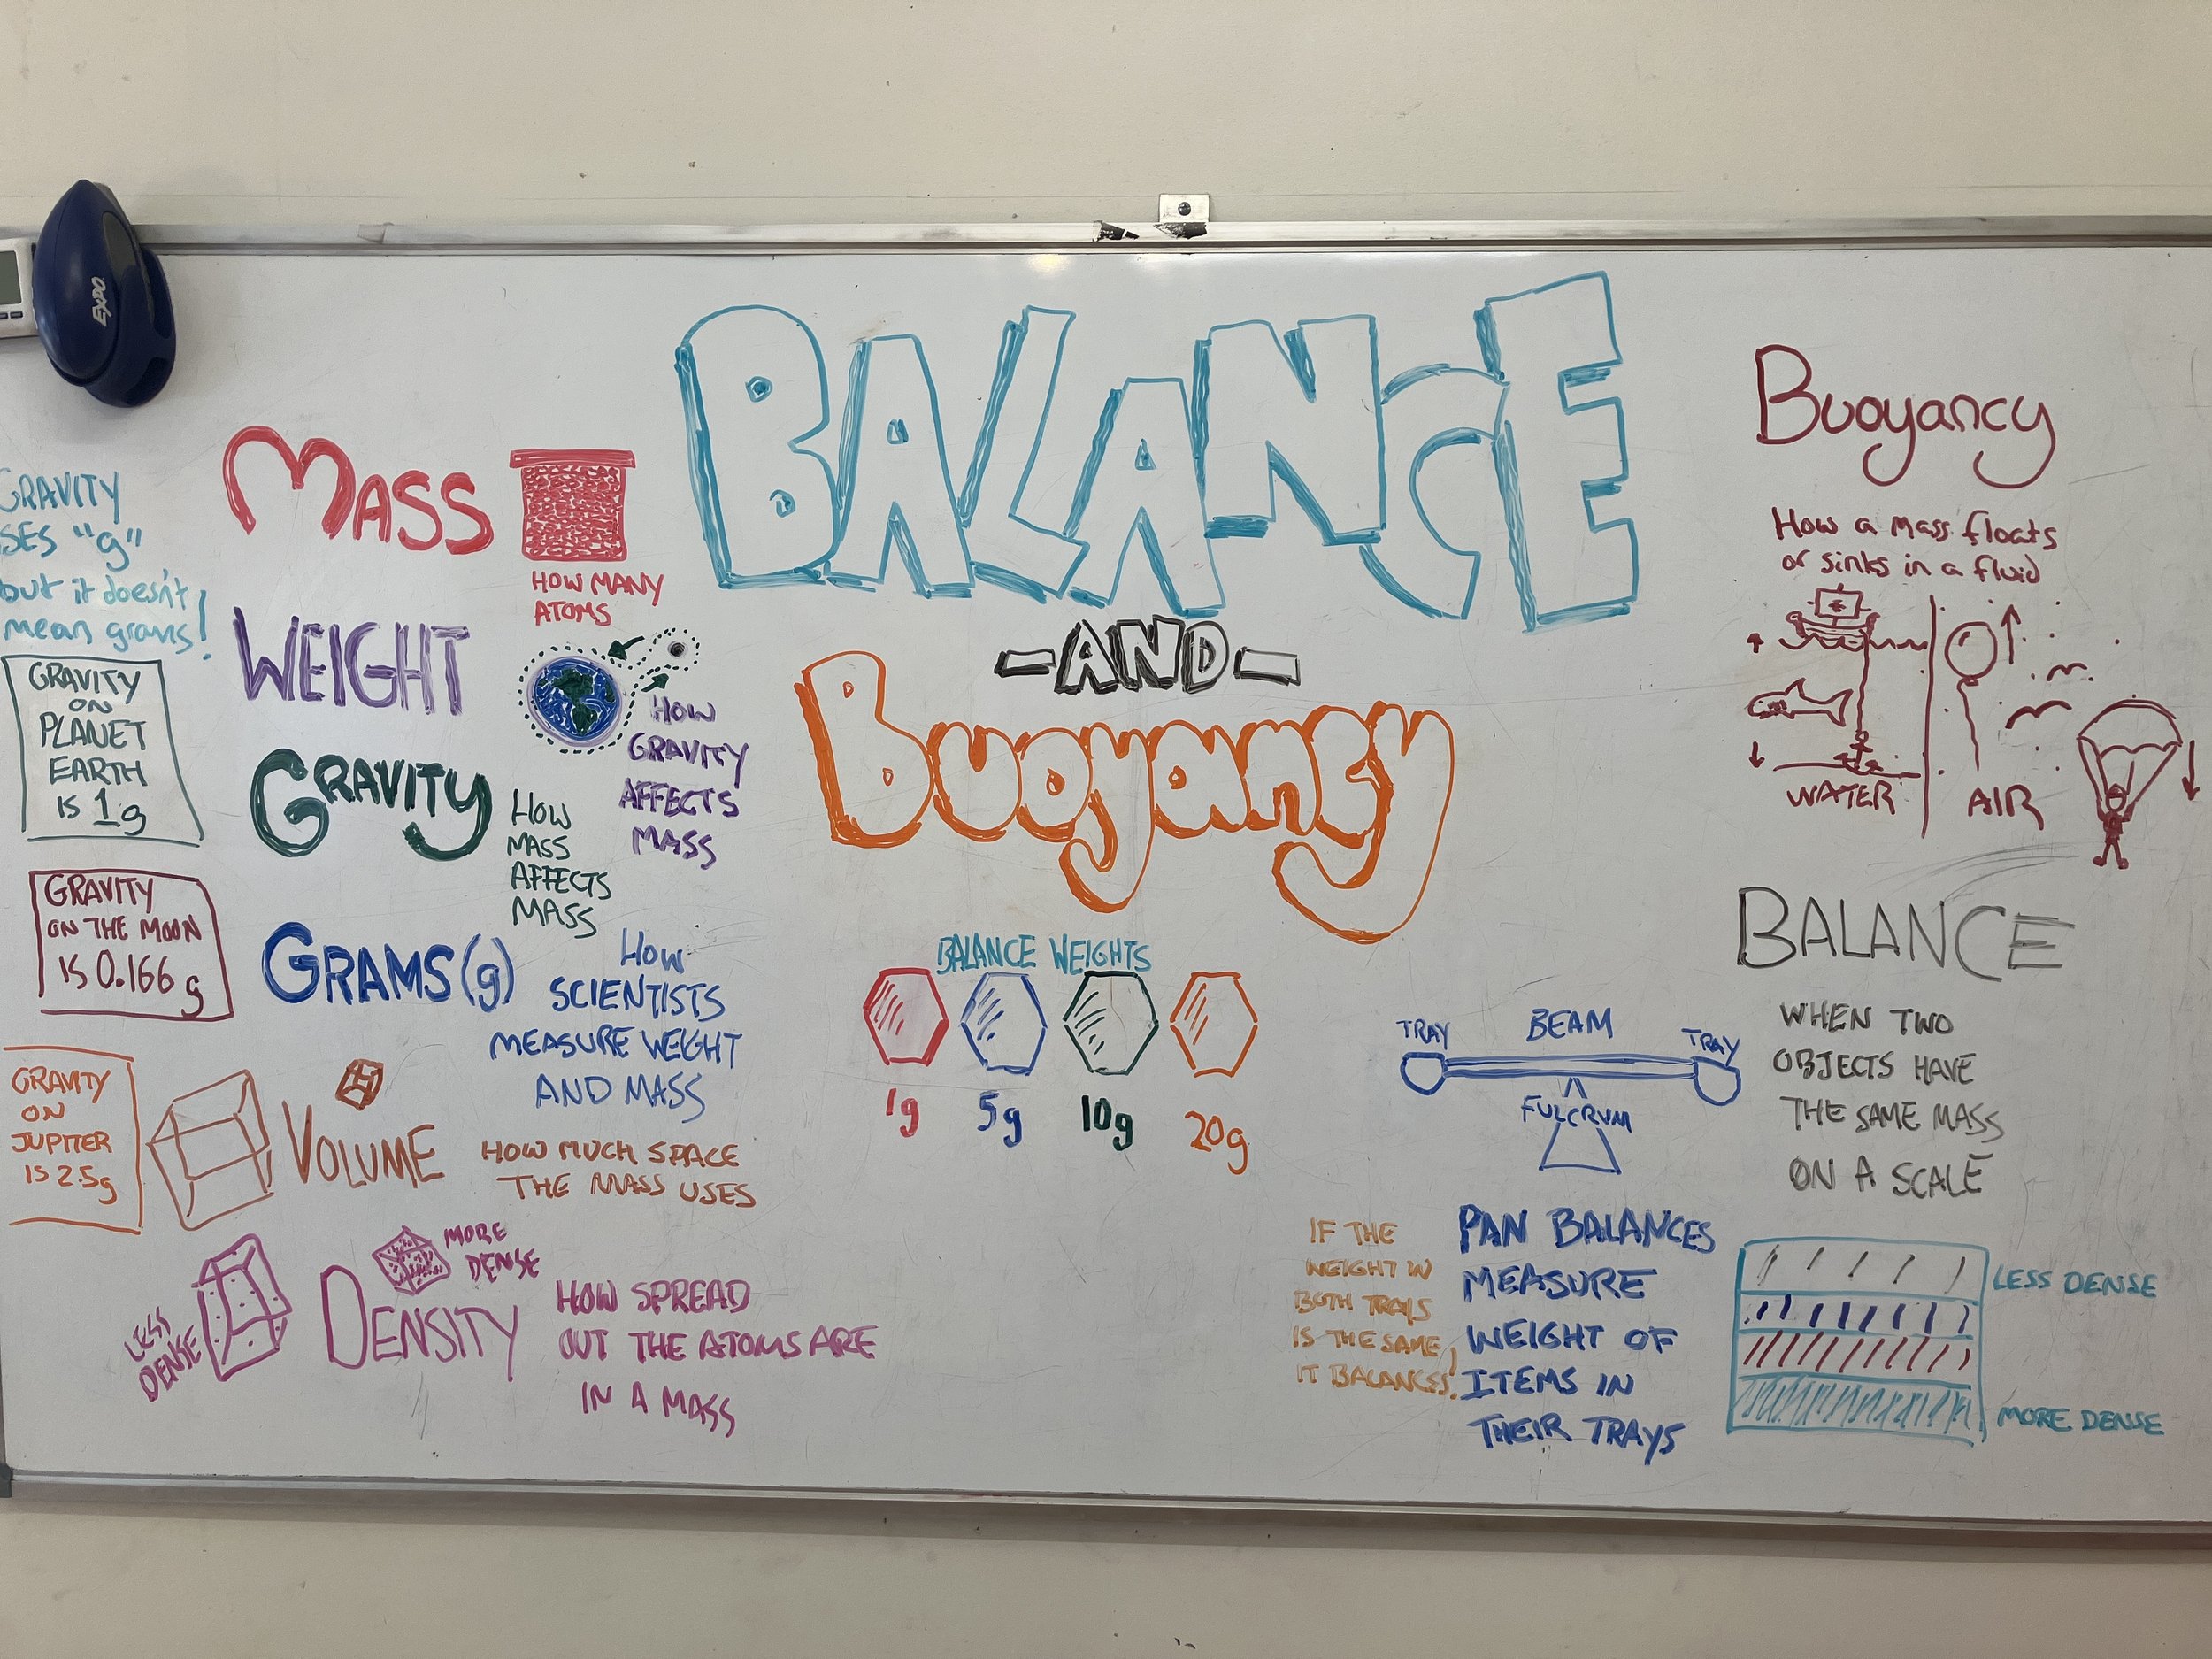 EXPO
BALANCE
-AND-
Buoyancy
MASS
HOW MANY
ATOMS
GRAVITY
"g"
but it doesn't
mean grams!
WEIGHT
HOW
GRAVITY
AFFECTS
MASS
GRAVITY
ON
PLANET
EARTH
IS 1g
GRAVITY
HOW
MASS
AFFECTS
MASS
GRAVITY
ON THE MOON
IS 0.166 g
GRAMS(g)
HOW
SCIENTISTS
MEASURE WEIGHT
AND MASS
GRAVITY
ON
JUPITER
IS 2.5g
VOLUME
HOW MUCH SPACE
THE MASS USES
LESS
DENSE
MORE
DENSE
DENSITY
HOW SPREAD
OUT THE ATOMS ARE
IN A MASS
BALANCE WEIGHTS
1g
5g
10g
20g
TRAY
BEAM
TRAY
FULCRUM
IF THE
WEIGHT IN
BOTH TRAYS
IS THE SAME
IT BALANCES!
PAN BALANCES
MEASURE
WEIGHT OF
ITEMS IN
THEIR TRAYS
Buoyancy
How a mass floats
or sinks in a fluid
WATER
AIR
BALANCE
WHEN TWO
OBJECTS HAVE
THE SAME MASS
ON A SCALE
LESS DENSE
MORE DENSE